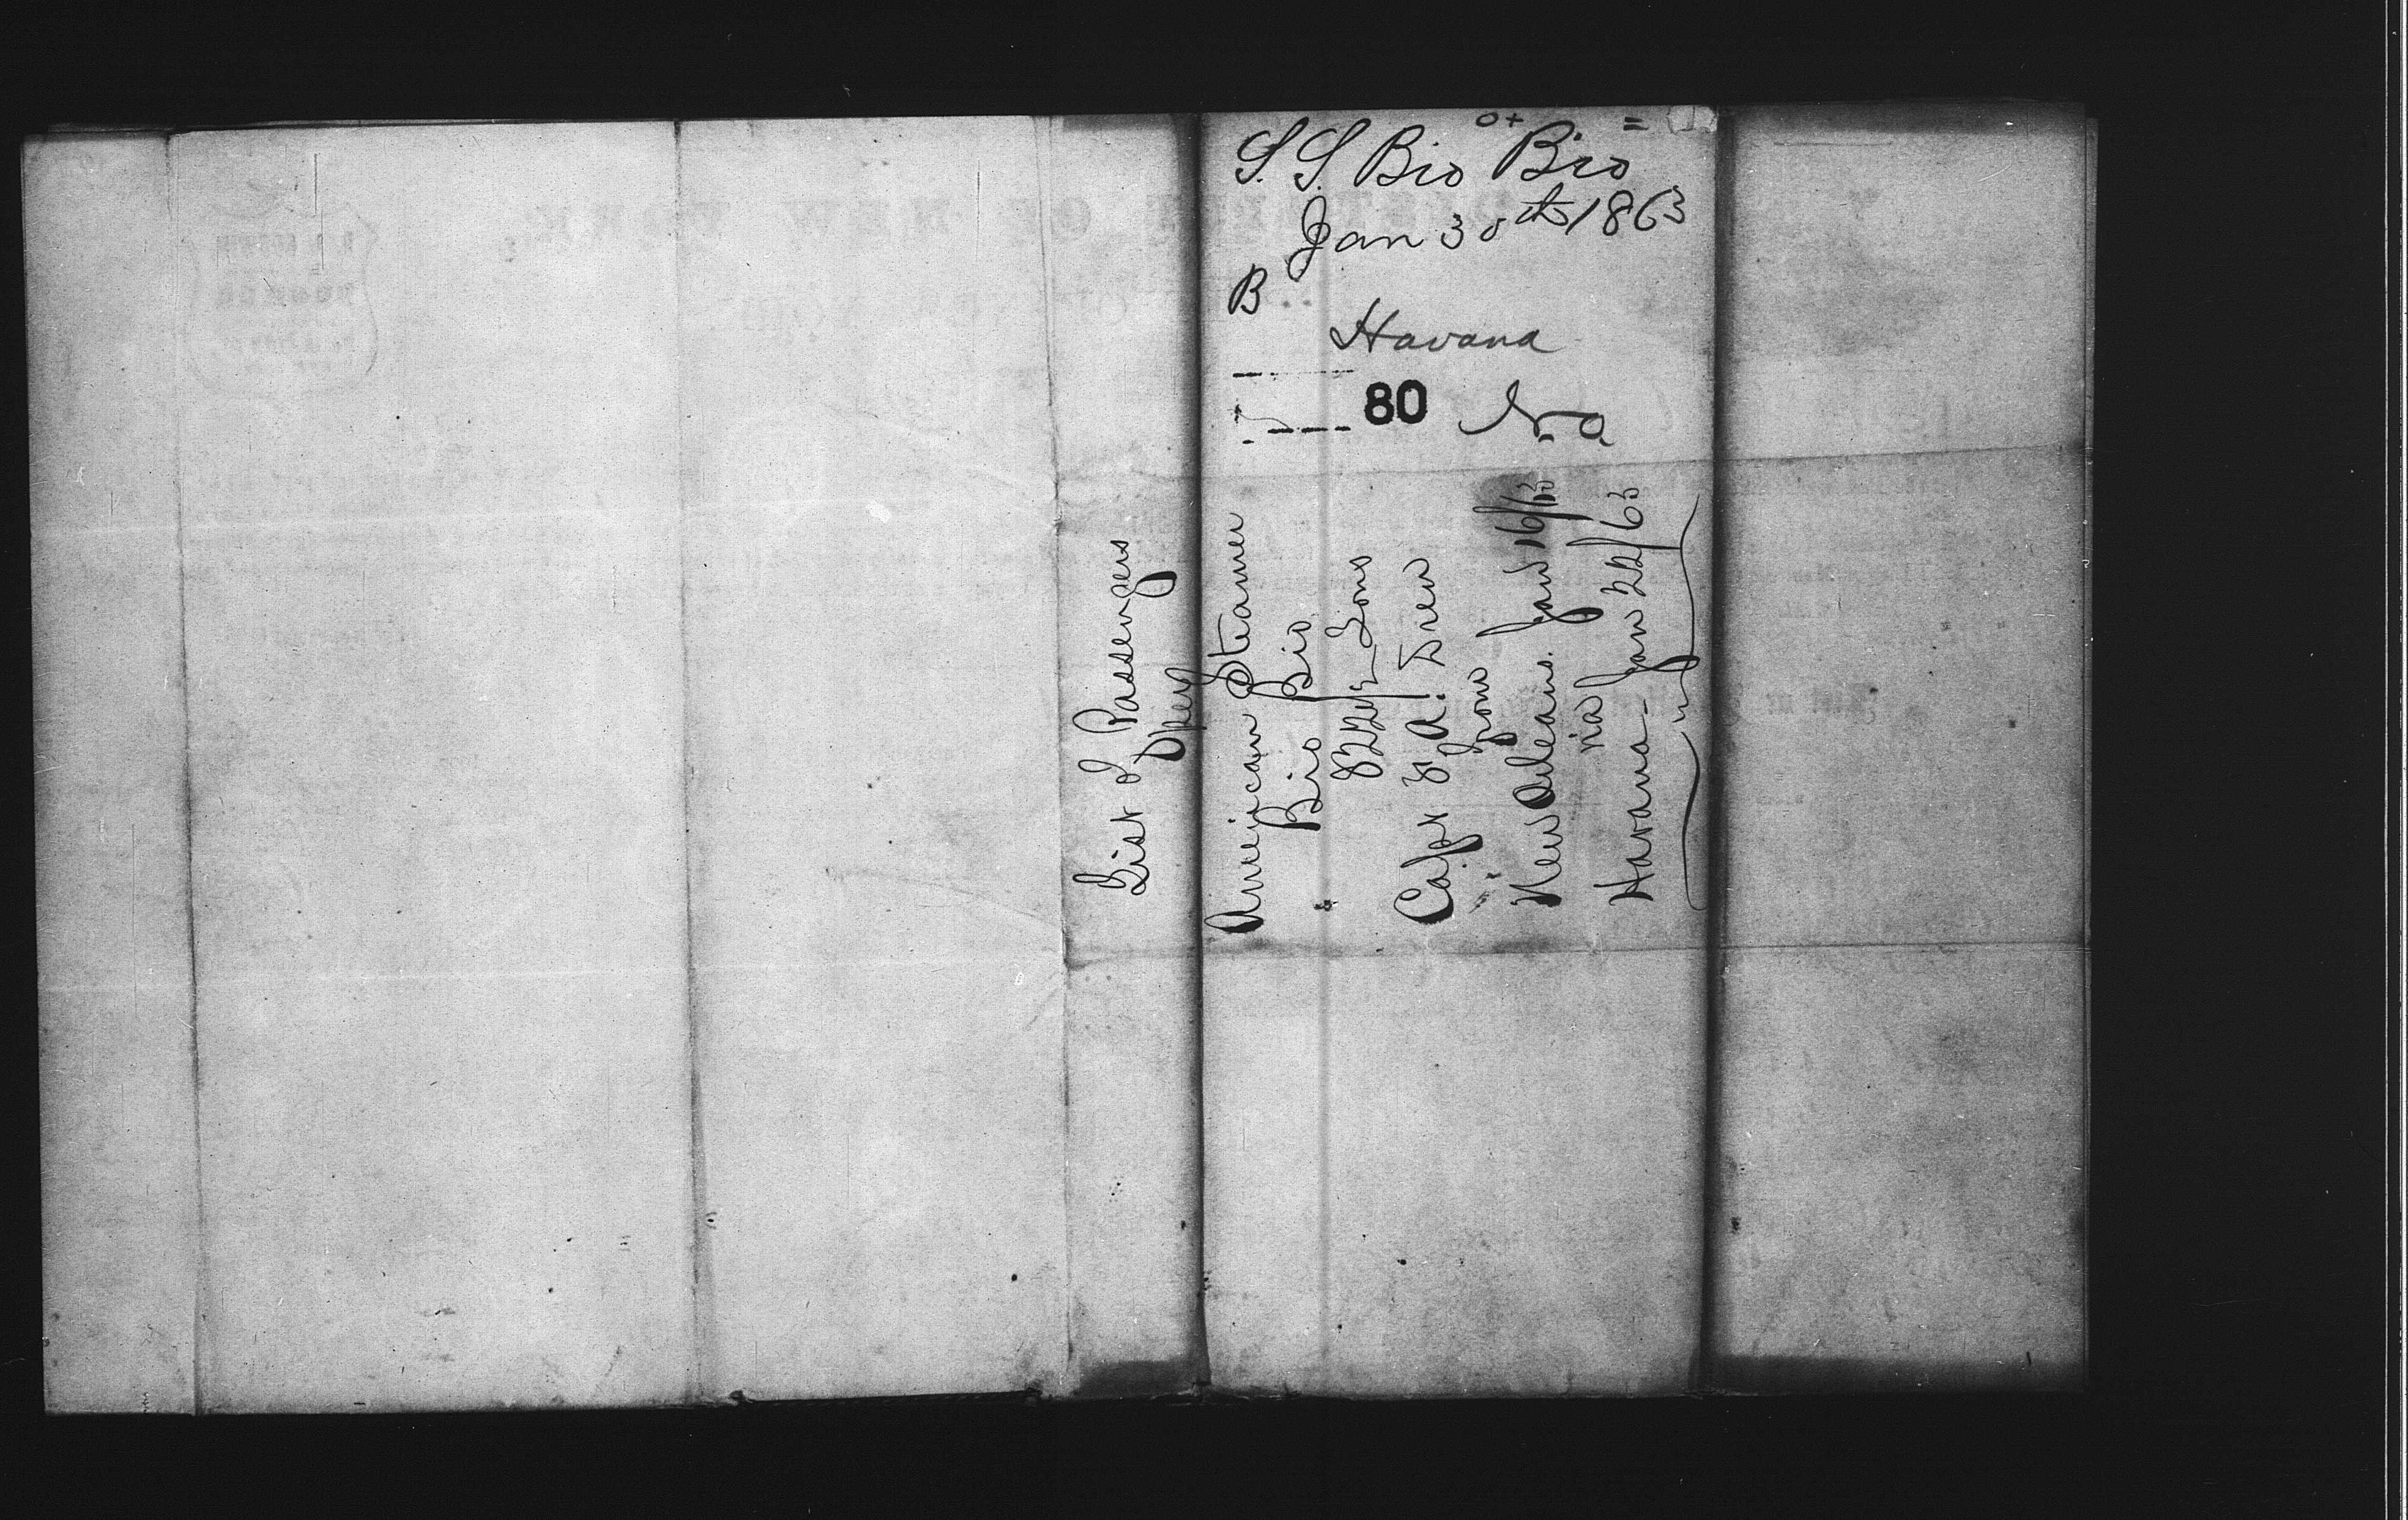 S.S. Bio Bio
Jan 30th 1863
B
Havana
80
List of Passengers
American Steamer
Bio Bio
Tons
Capt A. Drew
from
New Orleans. Jan 16/63
via
Havana - Jan 22/63